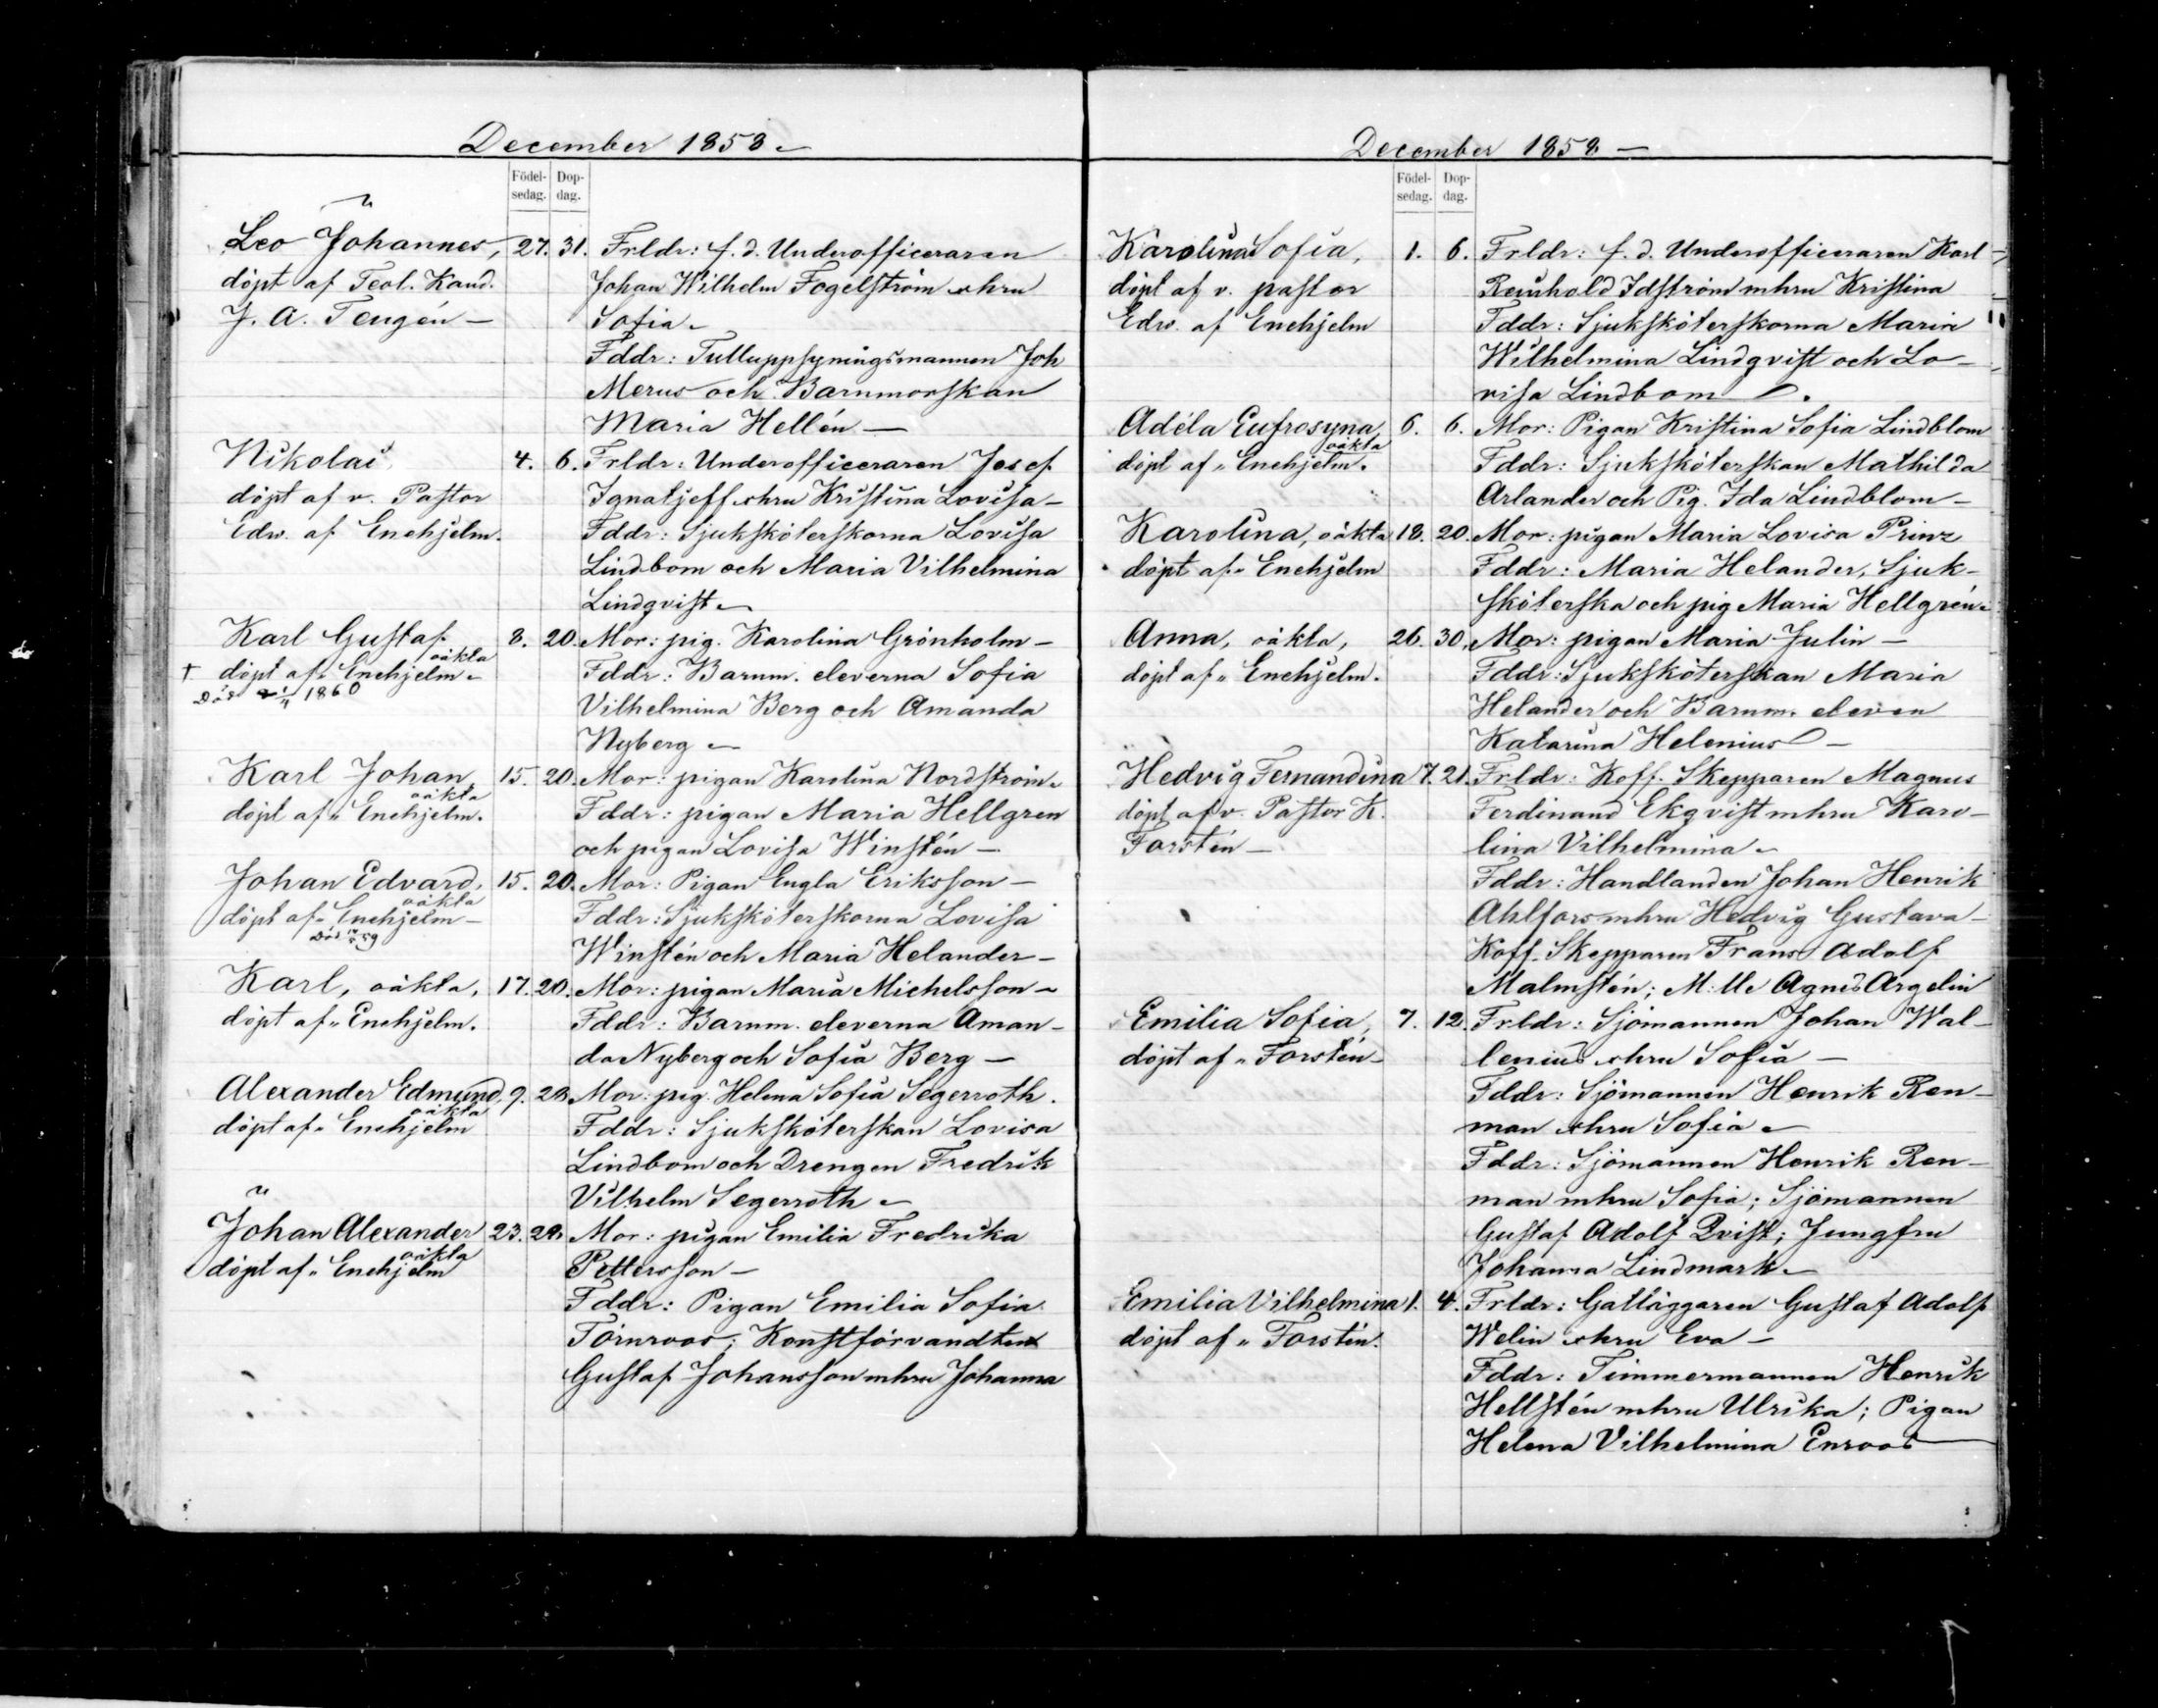 December 1858
Födel-
sedag.
Dop-
dag.
Leo Johannes, 27. 31. Frldr: f. d. Underofficeraren
döpt af Teol. Kand. Johan Wilhelm Fogelström o hru
J. A. Tengén — Sofia
Fddr: Tulluppsyningsmannen Joh
Merus och Barnmorskan
Maria Hellén —
Nikolai 4. 6. Frldr: Underofficeraren Josef
döpt af v. Pastor Ignatjeff o hru Kristina Lovisa —
Edw. af Enehjelm. Fddr: Sjuksköterskorna Lovisa
Lindbom och Maria Vilhelmina
Lindqvist
Karl Gustaf 8. 20. Mor: pig. Karolina Grönholm —
oäkta
† döpt af " Enehjelm Fddr: Barnm. eleverna Sofia
Död 1860 Vilhelmina Berg och Amanda
Nyberg
Karl Johan 15. 20. Mor: pigan Karolina Nordström
oäkta
döpt af " Enehjelm. Fddr: pigan Maria Hellgren
och pigan Lovisa Winstén —
Johan Edvard, 15. 20. Mor: Pigan Engla Eriksson —
oäkta
döpt af " Enehjelm — Fddr: Sjuksköterskorna Lovisa
Död 59 Winstén och Maria Helander —
Karl, oäkta, 17. 20. Mor: pigan Maria Michelsson —
döpt af " Enehjelm. Fddr: Barnm. eleverna Aman-
da Nyberg och Sofia Berg —
Alexander Edmund, 9. 28. Mor: pig. Helena Sofia Segerroth.
oäkta
döpt af " Enehjelm Fddr: Sjuksköterskan Lovisa
Lindbom och Drengen Fredrik
Vilhelm Segerroth
Johan Alexander 23. 28. Mor: pigan Emilia Fredrika
oäkta
döpt af " Enehjelm Pettersson —
Fddr: Pigan Emilia Sofia
Törnroos; Konstförvandten
Gustaf Johansson m hru Johanna
December 1858 —
Födel-
sedag.
Dop-
dag.
Karolina Sofia, 1. 6. Frldr: f. d. Underofficeraren Karl
döpt af v. pastor Reinhold Idström m hru Kristina
Edw. af Enehjelm Fddr: Sjuksköterskorna Maria
Wilhelmina Lindqvist och Lo-
visa Lindbom.
Adéla Eufrosyna, 6. 6. Mor: Pigan Kristina Sofia Lindblom
oäkta
döpt af " Enehjelm. Fddr: Sjuksköterskan Mathilda
Arlander och Pig. Ida Lindblom —
Karolina, oäkta 18. 20. Mor: pigan Maria Lovisa Prinz
döpt af " Enehjelm Fddr: Maria Helander, Sjuk-
sköterska och pig Maria Hellgrén
Anna, oäkta, 26. 30. Mor: pigan Maria Julin —
döpt af " Enehjelm. Fddr: Sjuksköterskan Maria
Helander och Barnm. eleven
Katarina Helenius —
Hedvig Fernandina 7. 21. Frldr: Koff. Skepparen Magnus
döpt af v. Pastor K. Ferdinand Ekqvist m hru Karo-
Forstén — lina Vilhelmina
Fddr: Handlanden Johan Henrik
Ahlfors m hru Hedvig Gustava —
Koff. Skepparen Frans Adolf
Malmstén; M:lle Agnes Argelin
Emilia Sofia, 7. 12. Frldr: Sjömannen Johan Wal-
döpt af " Forstén — lenius o hru Sofia —
Fddr: Sjömannen Henrik Ren-
man o hru Sofia
Fddr: Sjömannen Henrik Ren-
man m hru Sofia; Sjömannen
Gustaf Adolf Qvist; Jungfru
Johanna Lindmark
Emilia Vilhelmina 1. 4. Frldr: Gatläggaren Gustaf Adolf
döpt af " Forstén. Welin o hru Eva —
Fddr: Timmermannen Henrik
Hellstén m hru Ulrika; Pigan
Helena Vilhelmina Enroos